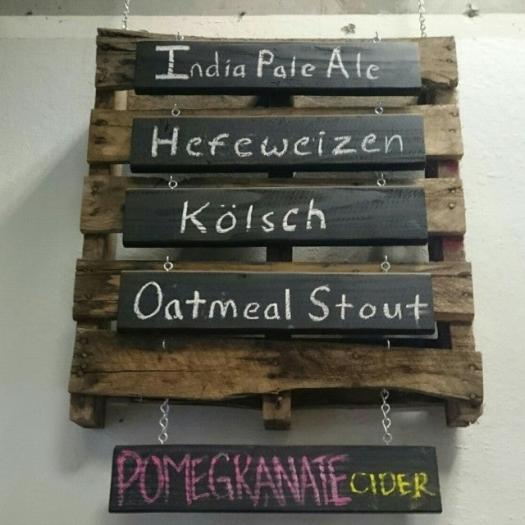 India Pale Ale
Hefeweizen
Kölsch
Oatmeal Stout
POMEGRANATE CIDER